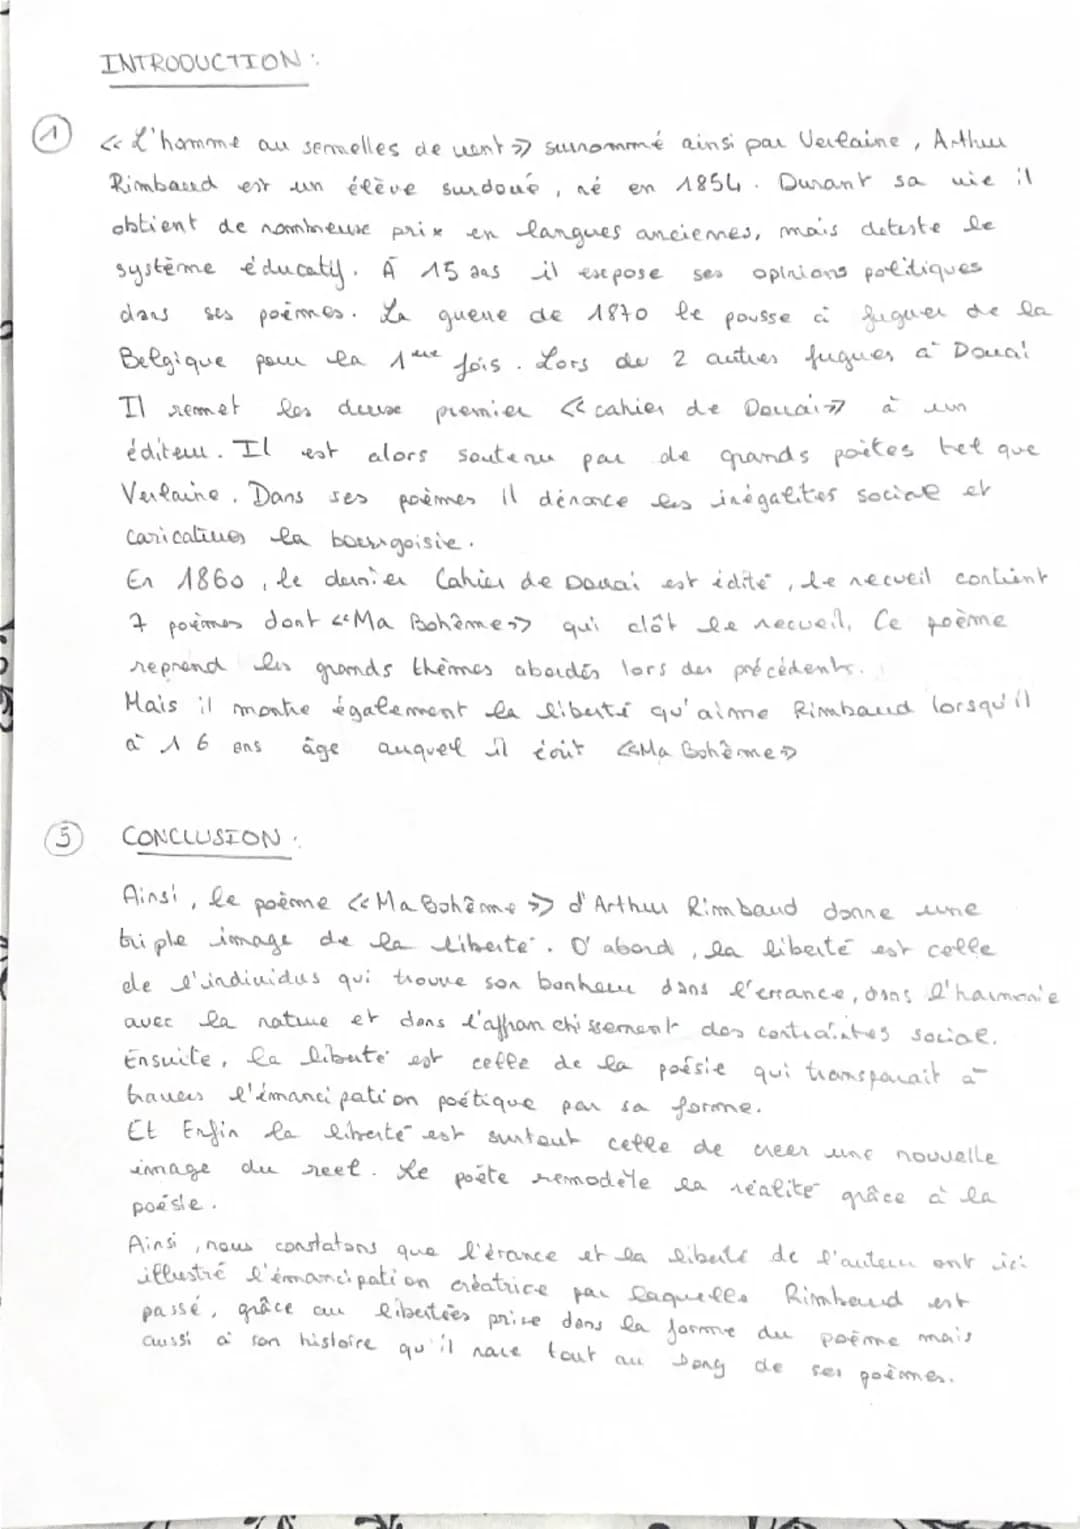 INTRODUCTION :
1 « L'homme au semelles de vent » surnommé ainsi par Verlaine, Arthur
Rimbaud est un élève surdoué, né en 1854. Durant sa vie il
obtient de nombreuse prix en langues anciennes, mais deteste le
système éducatif. À 15 ans il expose ses opinions politiques
dans ses poèmes. La guerre de 1870 le pousse à fuguer de la
Belgique pour la 1ère fois. Lors de 2 autres fugues à Douai
Il remet les deux premier « cahier de Douai » à un
éditeur. Il est alors soutenu par de grands poètes tel que
Verlaine. Dans ses poèmes il dénonce les inégalités sociale et
caricatures la bourgoisie.
En 1860, le dernier Cahier de Douai est édité, le recueil contient
7 poèmes dont « Ma Bohême » qui clôt le recueil. Ce poème
reprend les grands thèmes abordés lors des précédents.
Mais il montre également la liberté qu'aime Rimbaud lorsqu'il
à 16 ans âge auquel il écrit « Ma Bohême »
5 CONCLUSION :
Ainsi, le poème « Ma Bohême » d'Arthur Rimbaud donne une
triple image de la liberté. D'abord, la liberté est celle
de l'individus qui trouve son bonheur dans l'errance, dans l'harmonie
avec la nature et dans l'affranchissement des contraintes social.
Ensuite, la liberté est celle de la poésie qui transparait à
travers l'émancipation poétique par sa forme.
Et Enfin la liberté est surtout celle de creer une nouvelle
image du reel. Le poète remodèle la réalité grâce à la
poésie.
Ainsi, nous constatons que l'érance et la liberté de l'auteur ont ici
illustré l'émancipation créatrice par laquelle Rimbaud est
passé, grâce au libertées prise dans la forme du poème mais
aussi à son histoire qu'il nare tout au long de ses poèmes.